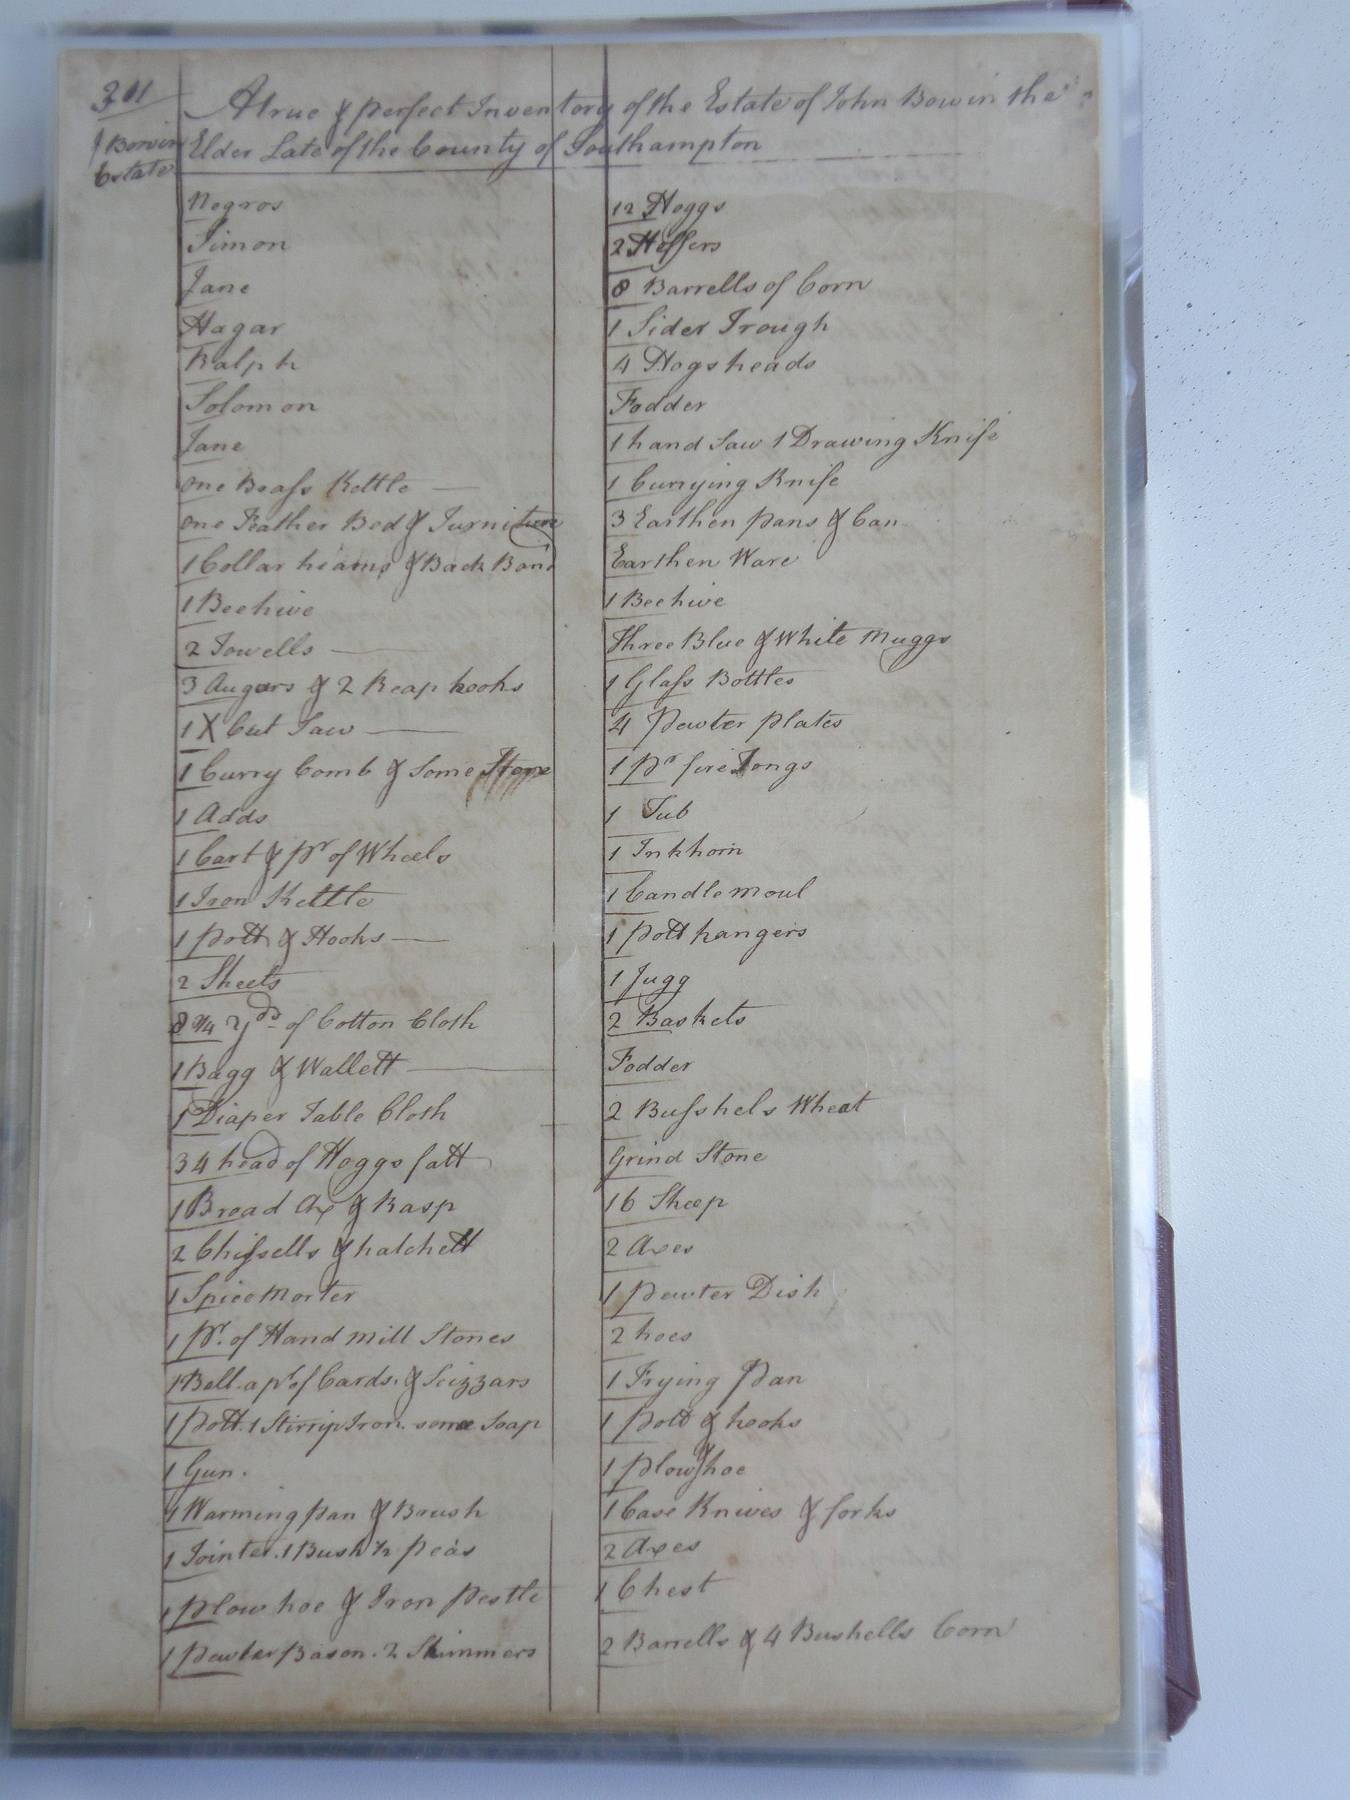 311
J Bowin
Estate
A true & perfect Inventory of the Estate of John Bowin the
Elder Late of the County of Southampton
Negros
Simon
Jane
Hagar
Ralph
Solomon
Jane
one Brass Kettle
one Feather Bed & Furniture
1 Collar heams & Back Band
1 Beehive
2 Towells
3 Augurs & 2 Reap hooks
1 X Cut Saw
1 Curry Comb & Some
1 Adds
1 Cart & pr of Wheels
1 Iron Kettle
1 pott & Hooks
2 Sheets
8 3/4 yds of Cotton Cloth
1 Bagg & Wallett
1 Diaper Table Cloth
34 head of Hoggs fatt
1 Broad Axe & Rasp
2 Chissells & hatchett
1 Spice Morter
1 pr. of Hand Mill Stones
1 Bell. a pr of Cards. & Scizzars
1 pott. 1 Stirrip Iron. some Soap
1 Gun.
Warming pan & Brush
1 Jointer. 1 Bush peas
1 plow hoe & Iron pestle
1 pewter Bason. 2 Skimmers
12 Hoggs
2 Heffers
8 Barrells of Corn
1 Sider Trough
4 Hogsheads
Fodder
1 hand Saw 1 Drawing Knife
1 Currying Knife
3 Earthen pans & Can
Earthen Ware
1 Beehive
Three Blue & White Muggs
1 Glass Bottles
4 pewter plates
1 pr fire Tongs
1 Tub
1 Inkhorn
1 Candle moul
1 pott hangers
1 Jugg
2 Baskets
Fodder
2 Busshels Wheat
Grind Stone
16 Sheep
2 Axes
1 pewter Dish
2 hoes
1 Frying pan
1 pott & hooks
1 plow hoe
1 Case Knives & forks
2 Axes
1 Chest
2 Barrells & 4 Bushells Corn